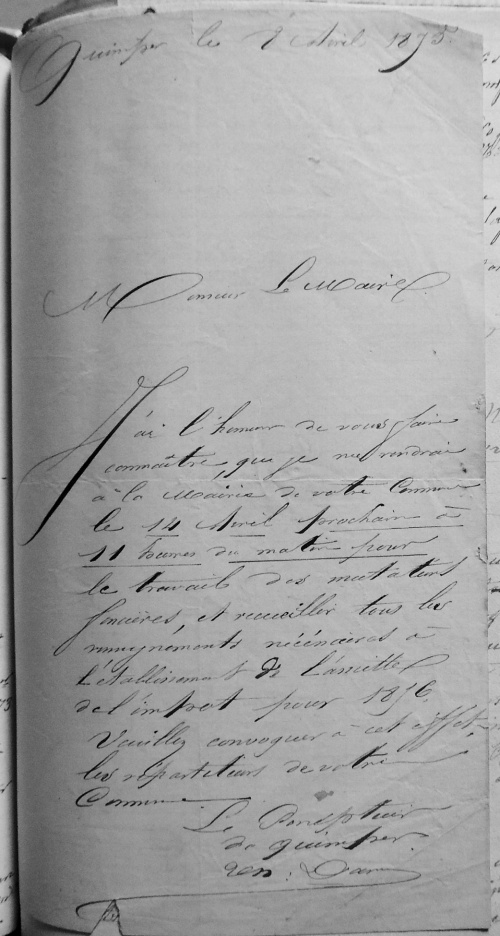 Quimper le 2 Avril 1875.
Monsieur Le Maire.
J'ai l'honneur de vous faire
connaître, que je me rendrai
à la Mairie de votre Commune
le 14 Avril prochain à
11 heures du matin pour
le travail des mutations
foncières, et recueillir tous les
renseignements nécessaires à
l'établissement de l'assiette
de l'impot pour 1876.
Veuillez convoquer à cet effet,
les répartiteurs de votre
Commune.
Le Percepteur
de Quimper.